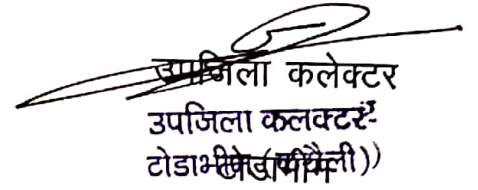 उपजिला कलेक्टर
उपजिला कलक्टर
टोडाभीम